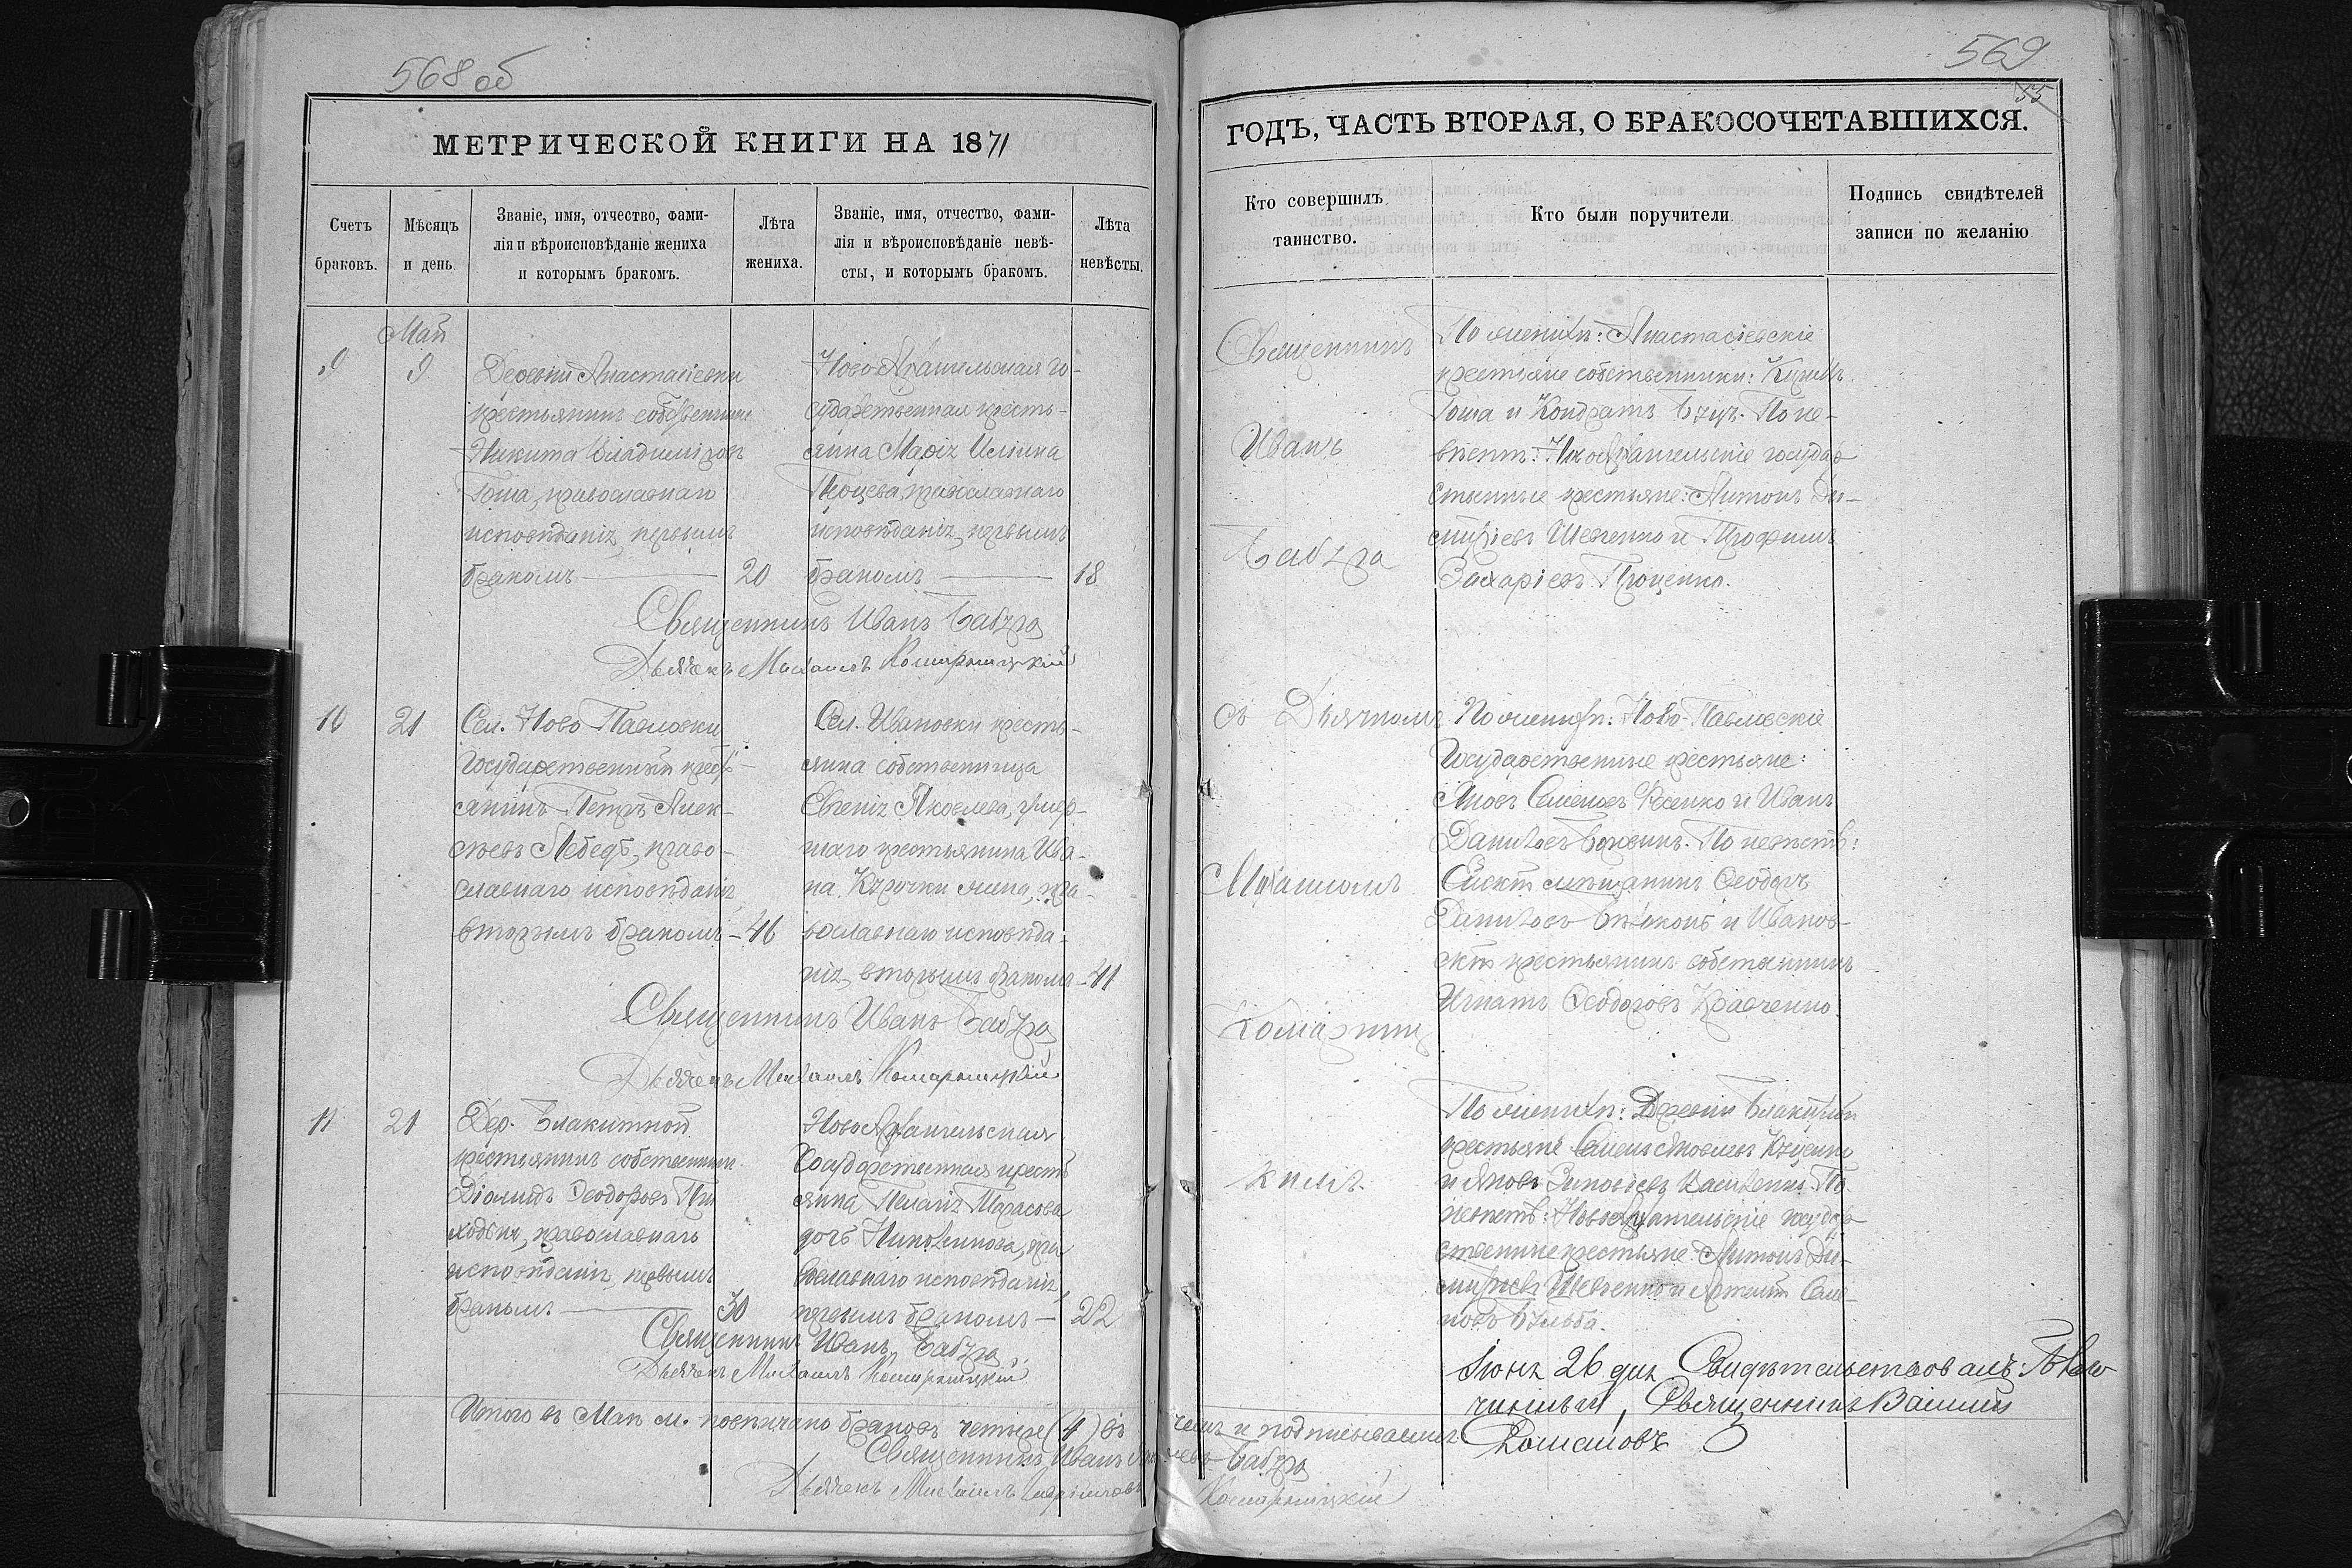 568 об
МЕТРИЧЕСКОЙ КНИГИ НА 1871
Счетъ браковъ.
Мѣсяцъ и день
Званіе, имя, отчество, фами-
лія и вѣроисповѣданіе жениха
и которымъ бракомъ.
Лѣта жениха.
Званіе, имя, отчество, фами-
лія и вѣроисповѣданіе невѣ-
сты, и которымъ бракомъ.
Лѣта невѣсты.
Май
9
9
Деревни Анастасіевки
крестьянинъ собственникъ
Никита Владиміровъ
православнаго
исповѣданія, первымъ
бракомъ
20
Ново Архангельская го-
сударственная кресть-
янка Марія
православнаго
исповѣданія, первымъ
бракомъ
18
Священникъ Иванъ Бабура
Дьячекъ Михаилъ Комарницкій
10
21
Сел. Ново Павловки
Государственный крест-
янинъ Петръ Алек-
сѣевъ Лебедь, право-
славнаго исповѣданія,
вторымъ бракомъ - 46
Сел. Ивановки кресть-
янка собственница
Евгенія Яковлева, умер-
шаго крестьянина Ива-
на жена, пра-
вославнаго исповѣда-
нія, вторымъ бракомъ - 41
Священникъ Иванъ Бабура
Дьячекъ Михаилъ Комарницкій
11
21
Дер. Блакитной
крестьянинъ собственникъ
Діомидъ Ѳеодоровъ При
ходько, православнаго
исповѣданія, первымъ
бракомъ
30
Ново Архангельская
Государственная кресть
янка Пелагія Тарасова
дочь пра
вославнаго исповѣданія,
первымъ бракомъ - 22
Священникъ Иванъ Бабура
Дьячекъ Михаилъ Комарницкій
Итого въ Маѣ м. повѣнчано браковъ четыре (4) въ чемъ и подписываемся:
Священникъ Иванъ Бабура
Дьячекъ Михаилъ Комарницкій
569
55
ГОДЪ, ЧАСТЬ ВТОРАЯ, О БРАКОСОЧЕТАВШИХСЯ.
Кто совершилъ
таинство.
Кто были поручители
Подпись свидѣтелей
записи по желанію
Священникъ
Иванъ
Бабура
Съ Дьячкомъ
Михаиломъ
Комарниц
кимъ.
По женихѣ: Анастасіевскіе
крестьяне собственники:
и Кондратъ По не-
вѣстѣ: Ново Архангельскіе государ
ственные крестьяне: Антонъ Ди-
митріевъ Шевченко и Трофимъ
Захаріевъ Проценко.
По женихѣ: Ново-Павловскіе
Государственные крестьяне:
Яковъ Семеновъ и Иванъ
Даниловъ По невѣстѣ:
мѣщанинъ Ѳеодоръ
Даниловъ и Иванов-
скій крестьянинъ собственникъ
Игнатъ Ѳеодоровъ Кравченко.
По женихѣ: Деревни Блакитной
крестьяне Семенъ Яковлевъ
и Яковъ Зиновіевъ Василенко. По
невѣстѣ: Новоархангельскіе государ
ственные крестьяне Антонъ Ди-
митріевъ Шевченко и Семе-
новъ
Іюня 26 дня Свидѣтельствовалъ: Благо
чинный, Священникъ Василій
Романовъ